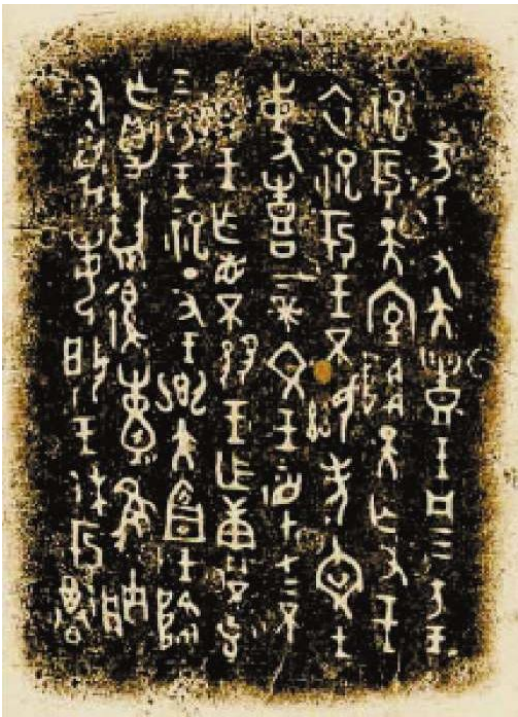 亥王又大豐王凡三方王
祀于天室降天亡又王
衣祀于王不顯考文王
事喜上帝文王監在上不
顯王乍省不王乍不克
衣王祀丁丑王鄉大宜王降
亡爵復隹朕
又每王休于尊